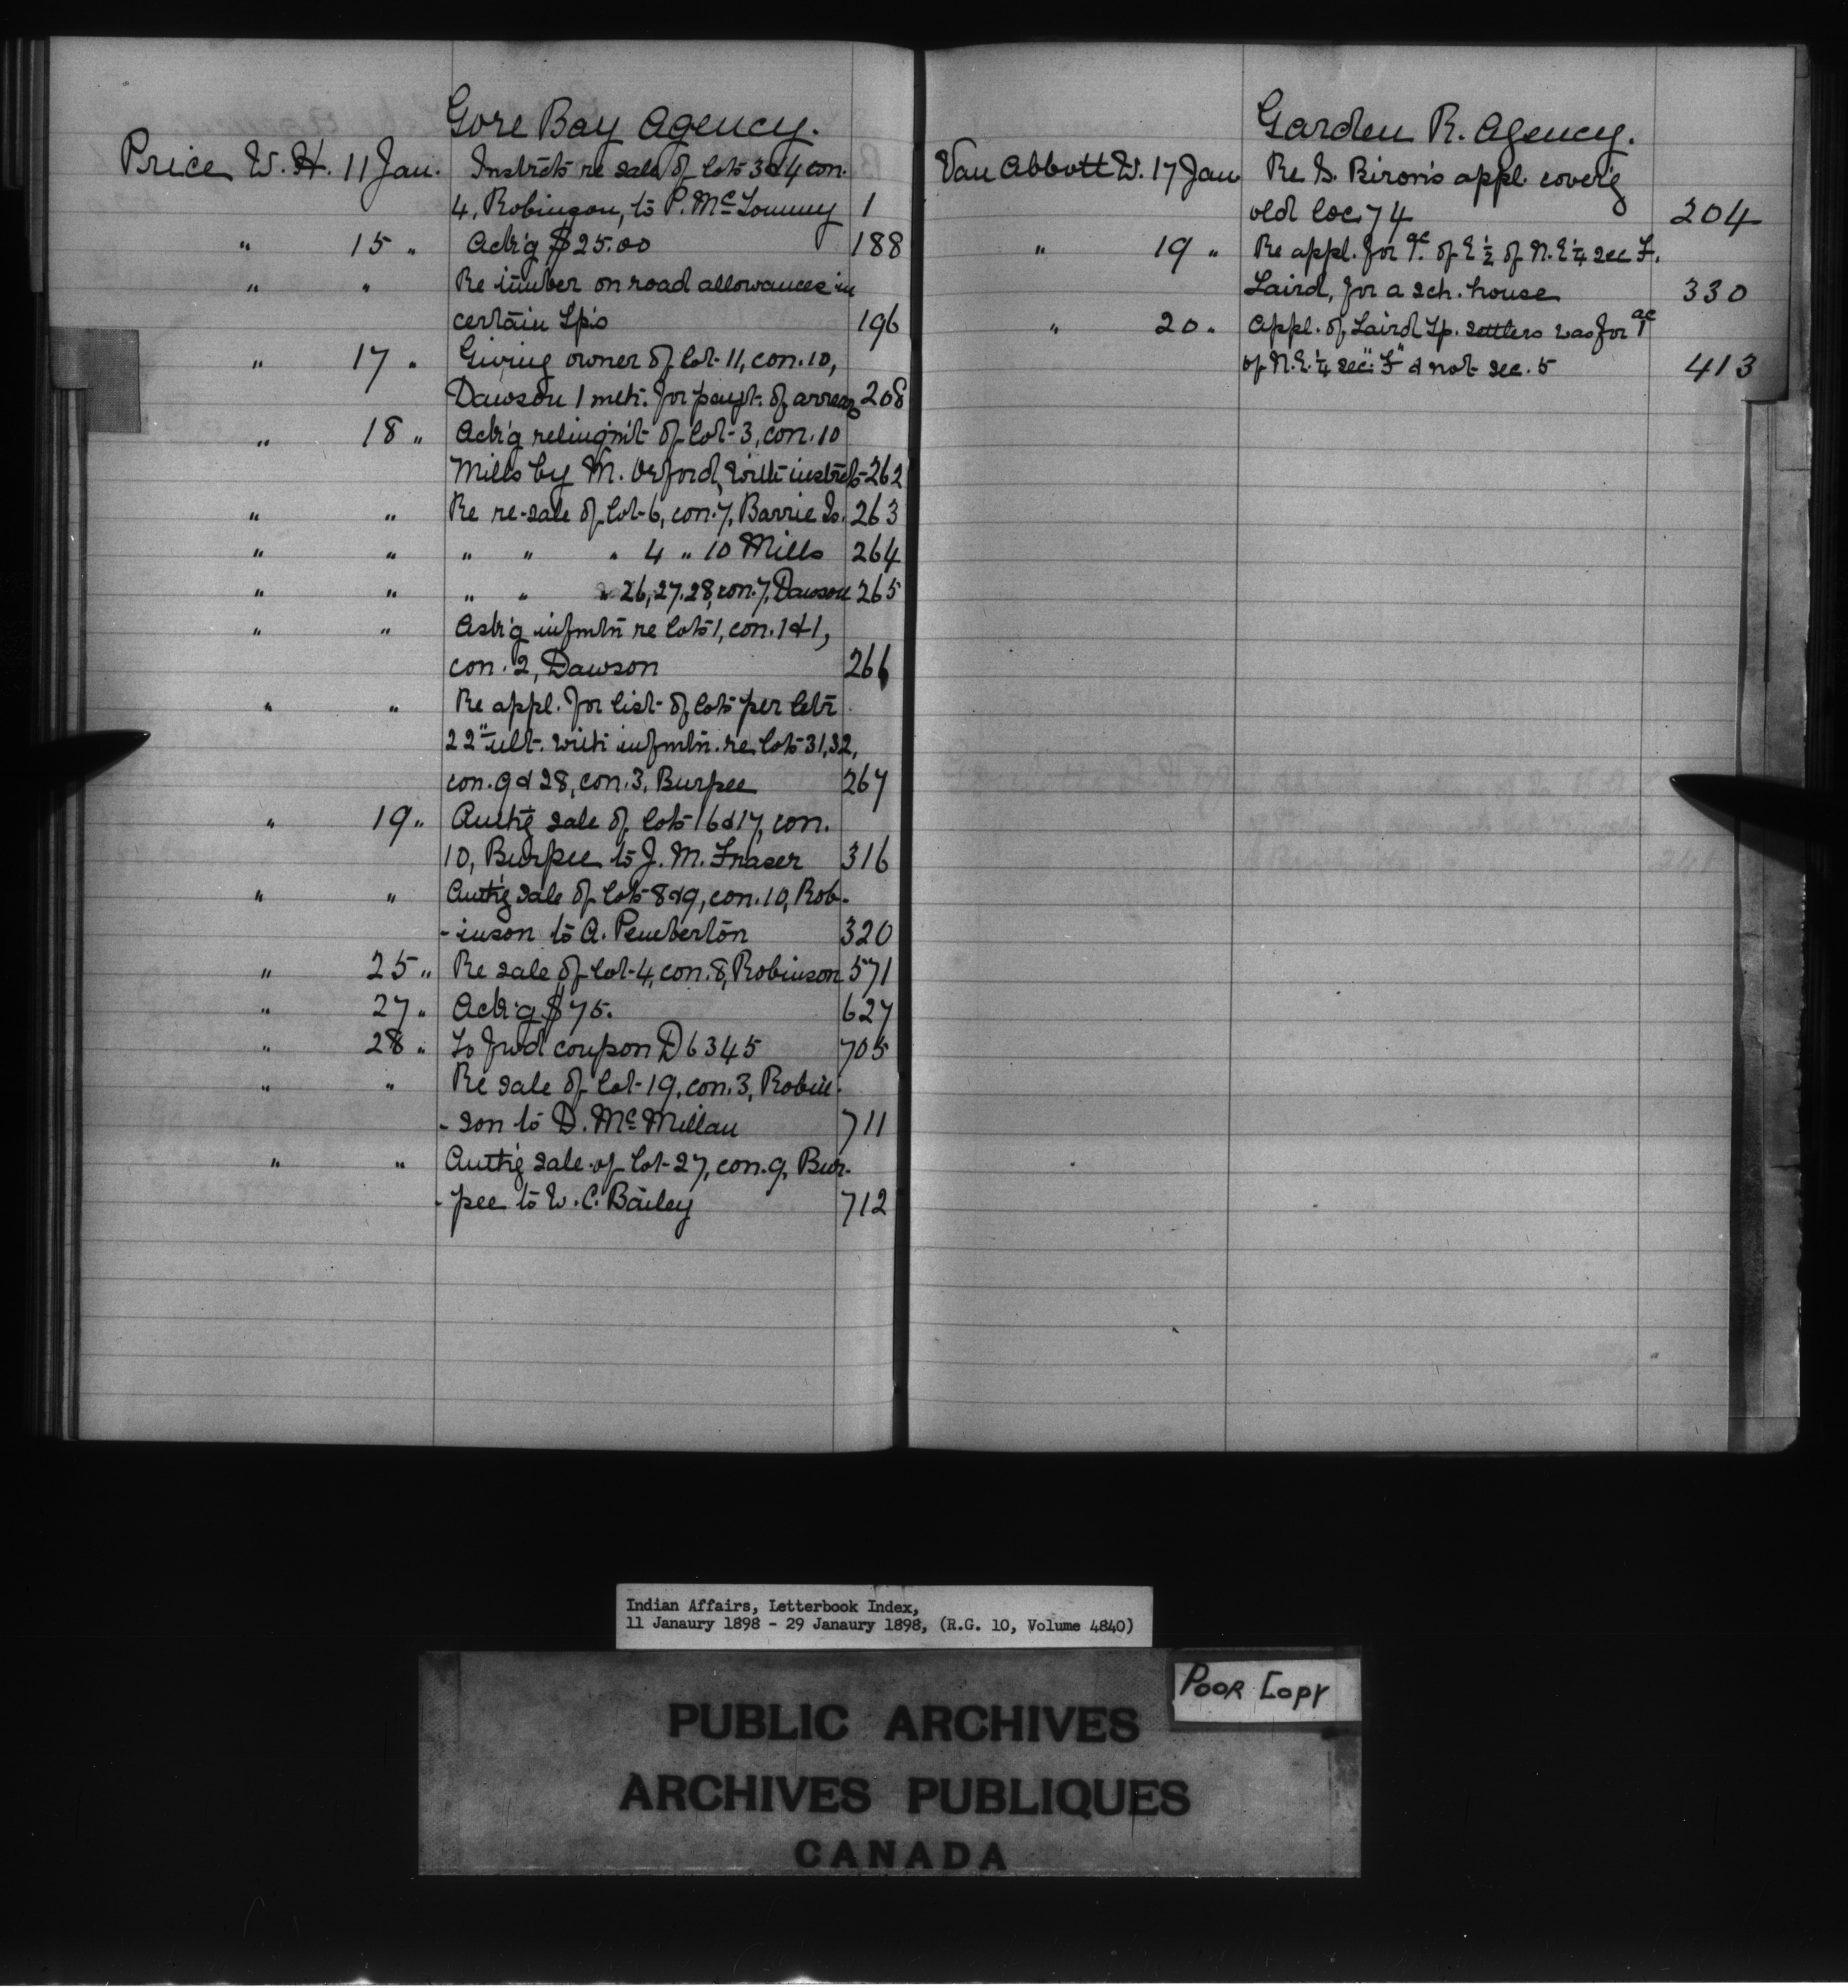 Gore Bay Agency.
Price W. H. 11 Jan. Instrcts re sale of lots 3 & 4 con.
4, Robinson, to P. Mc 1
" 15 " Ack'g $25.00 188
" " Re timber on road allowances in
certain Tp's 196
" 17 " Giving owner of lot 11, con. 10,
Dawson 1 mth. for paym't. of arrears 208
" 18 " Ack'g relinq'm't of lot 3, con. 10
Mills by M. Orford, with instrcts 262
" " Re re-sale of lot 6, con. 7, Barrie Is. 263
" " " " " 4 " 10 Mills 264
" " " " " 26, 27, 28, con. 7, Dawson 265
" " Ask'g infmtn re lots 1, con. 1 & 1,
con. 2, Dawson 266
" " Re appl. for list of lots per letr
22" ult. with infmtn. re lots 31, 32,
con. 9 & 28, con. 3, Burpee 267
" 19 " Auth'g sale of lots 16 & 17, con.
10, Burpee to J. M. Fraser 316
" " Auth'g sale of lots 8 & 9, con. 10, Rob-
-inson to A. Pemberton 320
" 25 " Re sale of lot 4, con. 8, Robinson 571
" 27 " Ack'g $75. 627
" 28 " To fwd coupon D 6345 705
" " Re sale of lot 19, con. 3, Robin-
-son to D. McMillan 711
" " Auth'g sale of lot 27, con. 9, Bur-
-pee to W. C. Bailey 712
Garden R. Agency.
Van Abbott W. 17 Jan Re S. Biron's appl. cover'g
old loc. 74 204
" 19 " Re appl. for 1 ac. of E ½ of N. E ¼ sec F.
Laird, for a sch. house 330
" 20 " Appl. of Laird Tp. settlers was for 1 ac
of N. E. ¼ sec. "F" & not sec. 5 413
Indian Affairs, Letterbook Index,
11 Janaury 1898 - 29 Janaury 1898, (R.G. 10, Volume 4840)
POOR COPY
PUBLIC ARCHIVES
ARCHIVES PUBLIQUES
CANADA